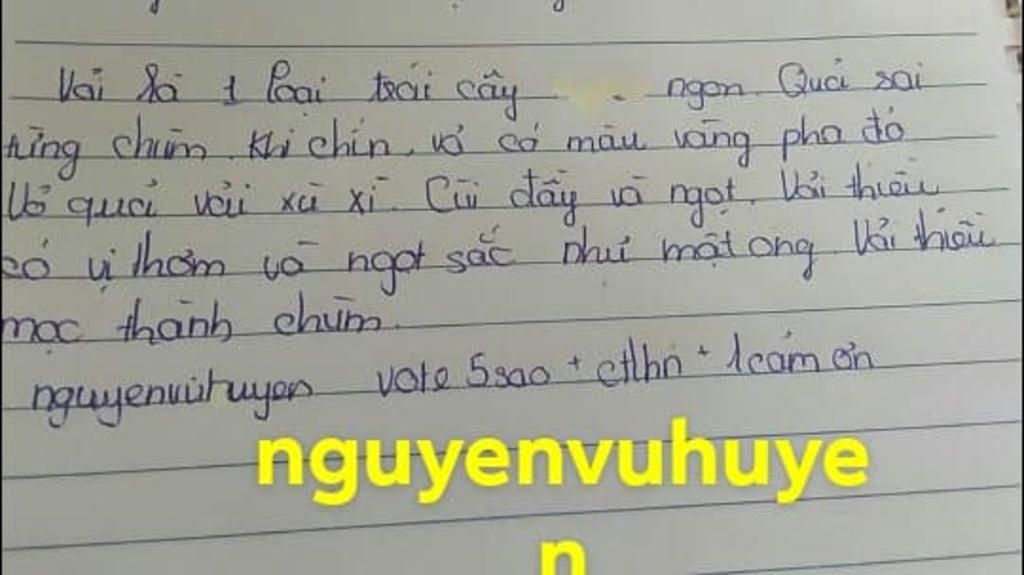 Vải là 1 loại trái cây ngon. Quả sai
từng chùm. Khi chín, vỏ có màu vàng pha đỏ
Vỏ quả vải xù xì. Cùi dầy và ngọt. Vải thiều
có vị thơm và ngọt sắc như mật ong Vải thiều
mọc thành chùm.
nguyenvuhuyen vote 5sao + ctlhn + 1 cảm ơn
nguyenvuhuye
n